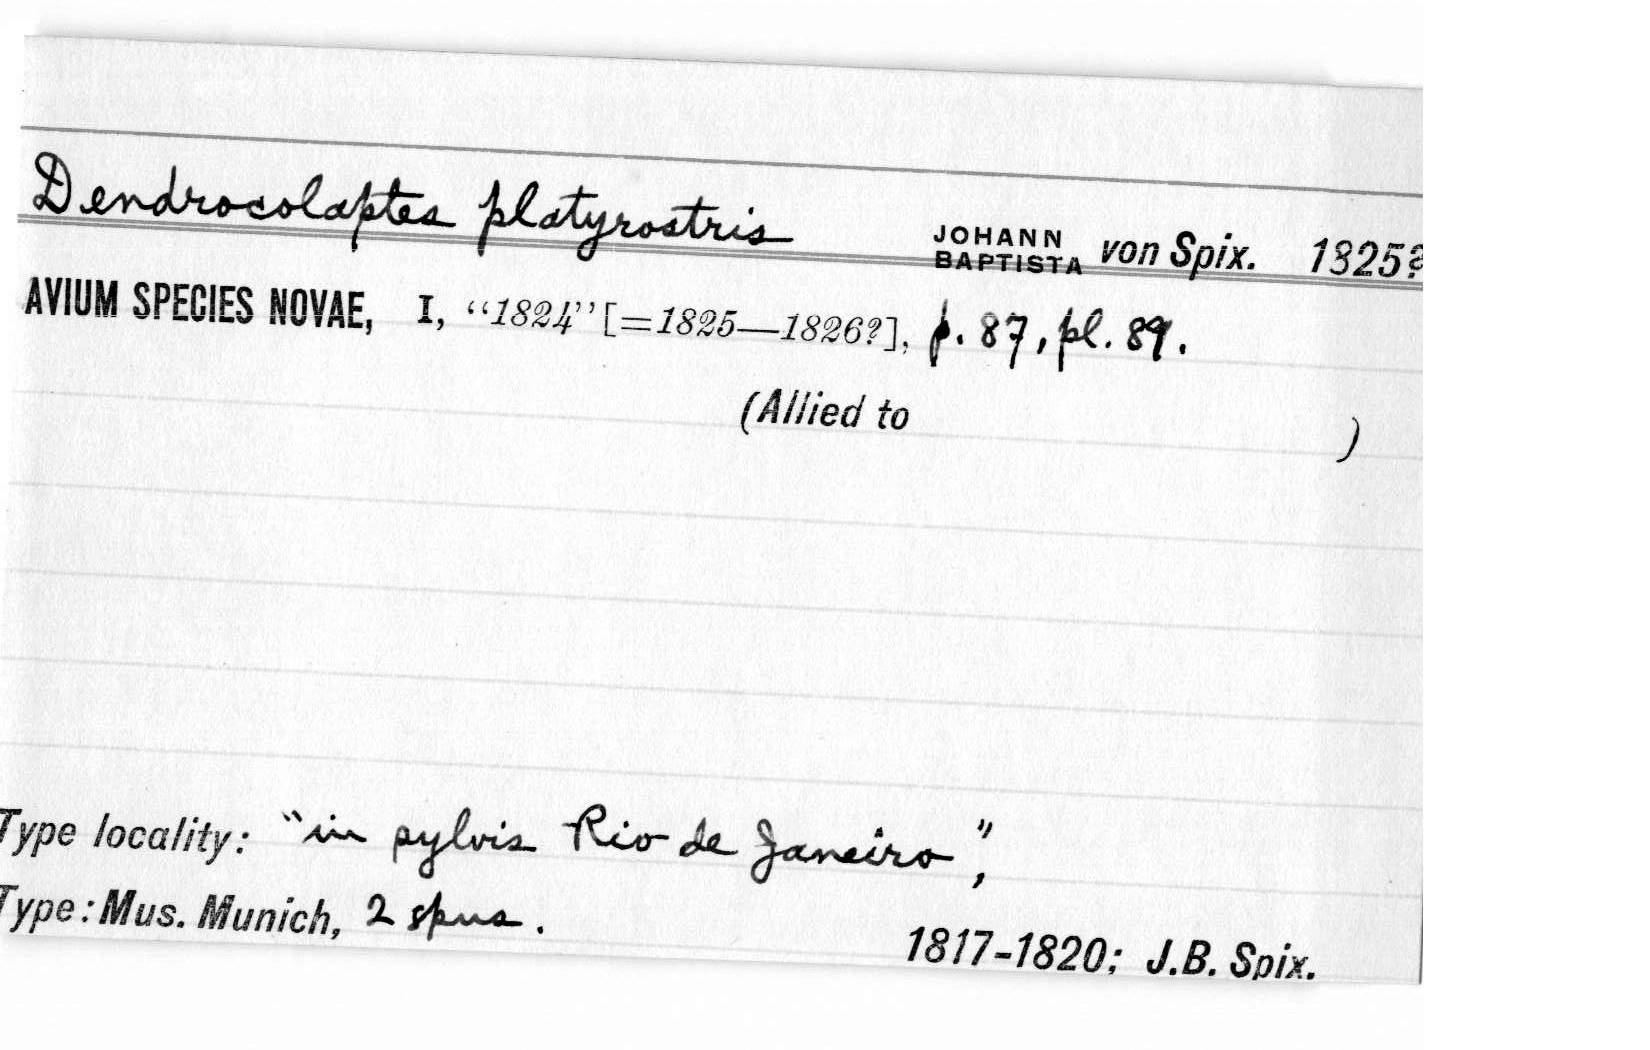 Dendrocolaptes platyrostris JOHANN BAPTISTA von Spix. 1825?
AVIUM SPECIES NOVAE, I, "1824" [=1825—1826?], p. 87, pl. 89.
(Allied to )
Type locality: "in sylvis Rio de Janeiro",
Type: Mus. Munich, 2 spns.
1817-1820; J.B. Spix.